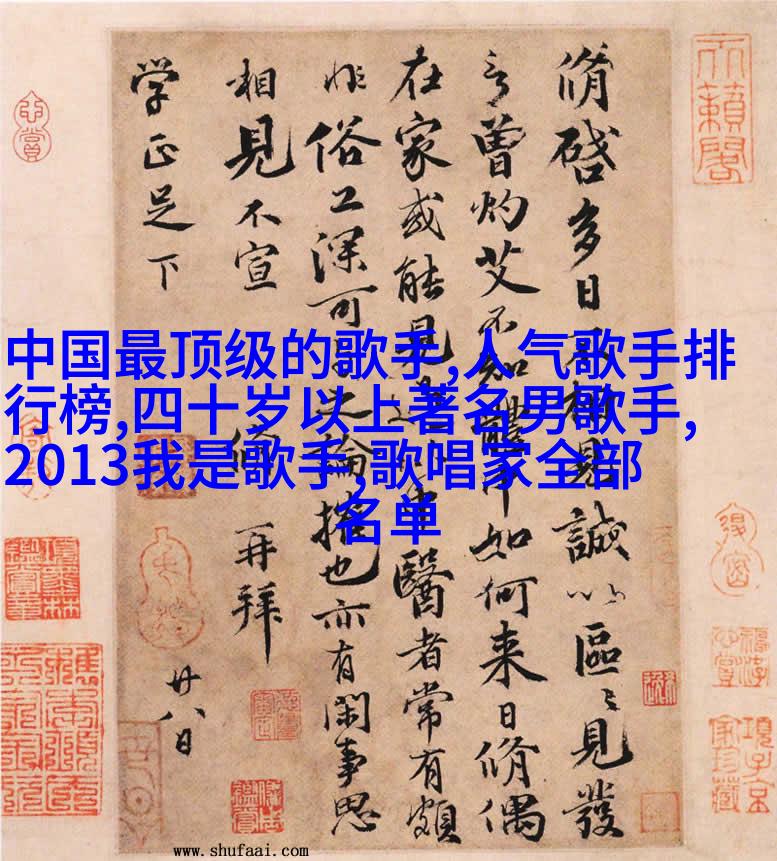 中国最顶级的歌手,人气歌手排
行榜,四十岁以上著名男歌手,
2013我是歌手,歌唱家全部
名单
脩啓多日不相見誠以區〻見發
言曾灼艾不知體中如何来日脩偶
在家或能見醫者常有頗
非俗工深可之論搉也亦有閑事思
相見不宣
脩再拜
廿八日
学正足下
天籟閣
www.shufaai.com